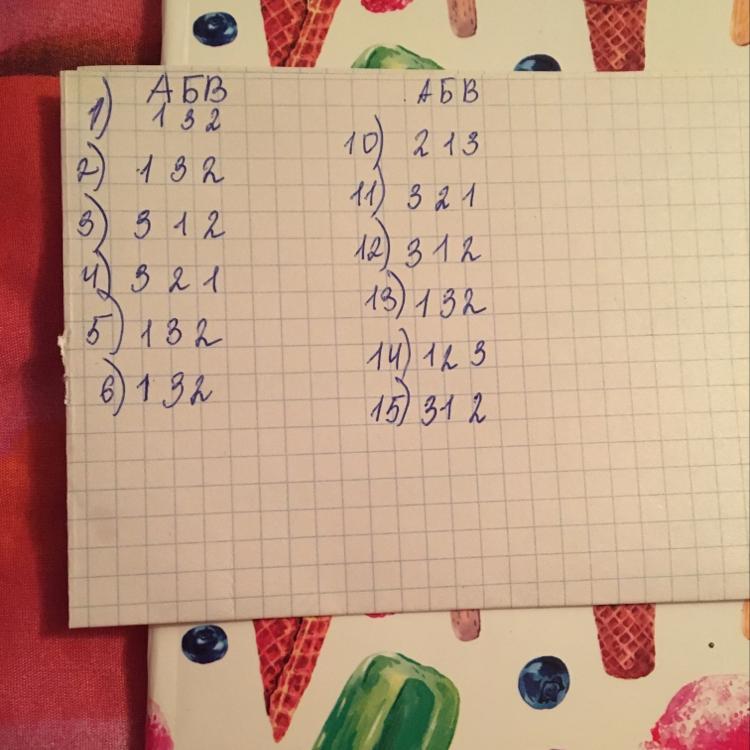 А Б В
1) 1 3 2
2) 1 3 2
3) 3 1 2
4) 3 2 1
5) 1 3 2
6) 1 3 2
А Б В
10) 2 1 3
11) 3 2 1
12) 3 1 2
13) 1 3 2
14) 1 2 3
15) 3 1 2